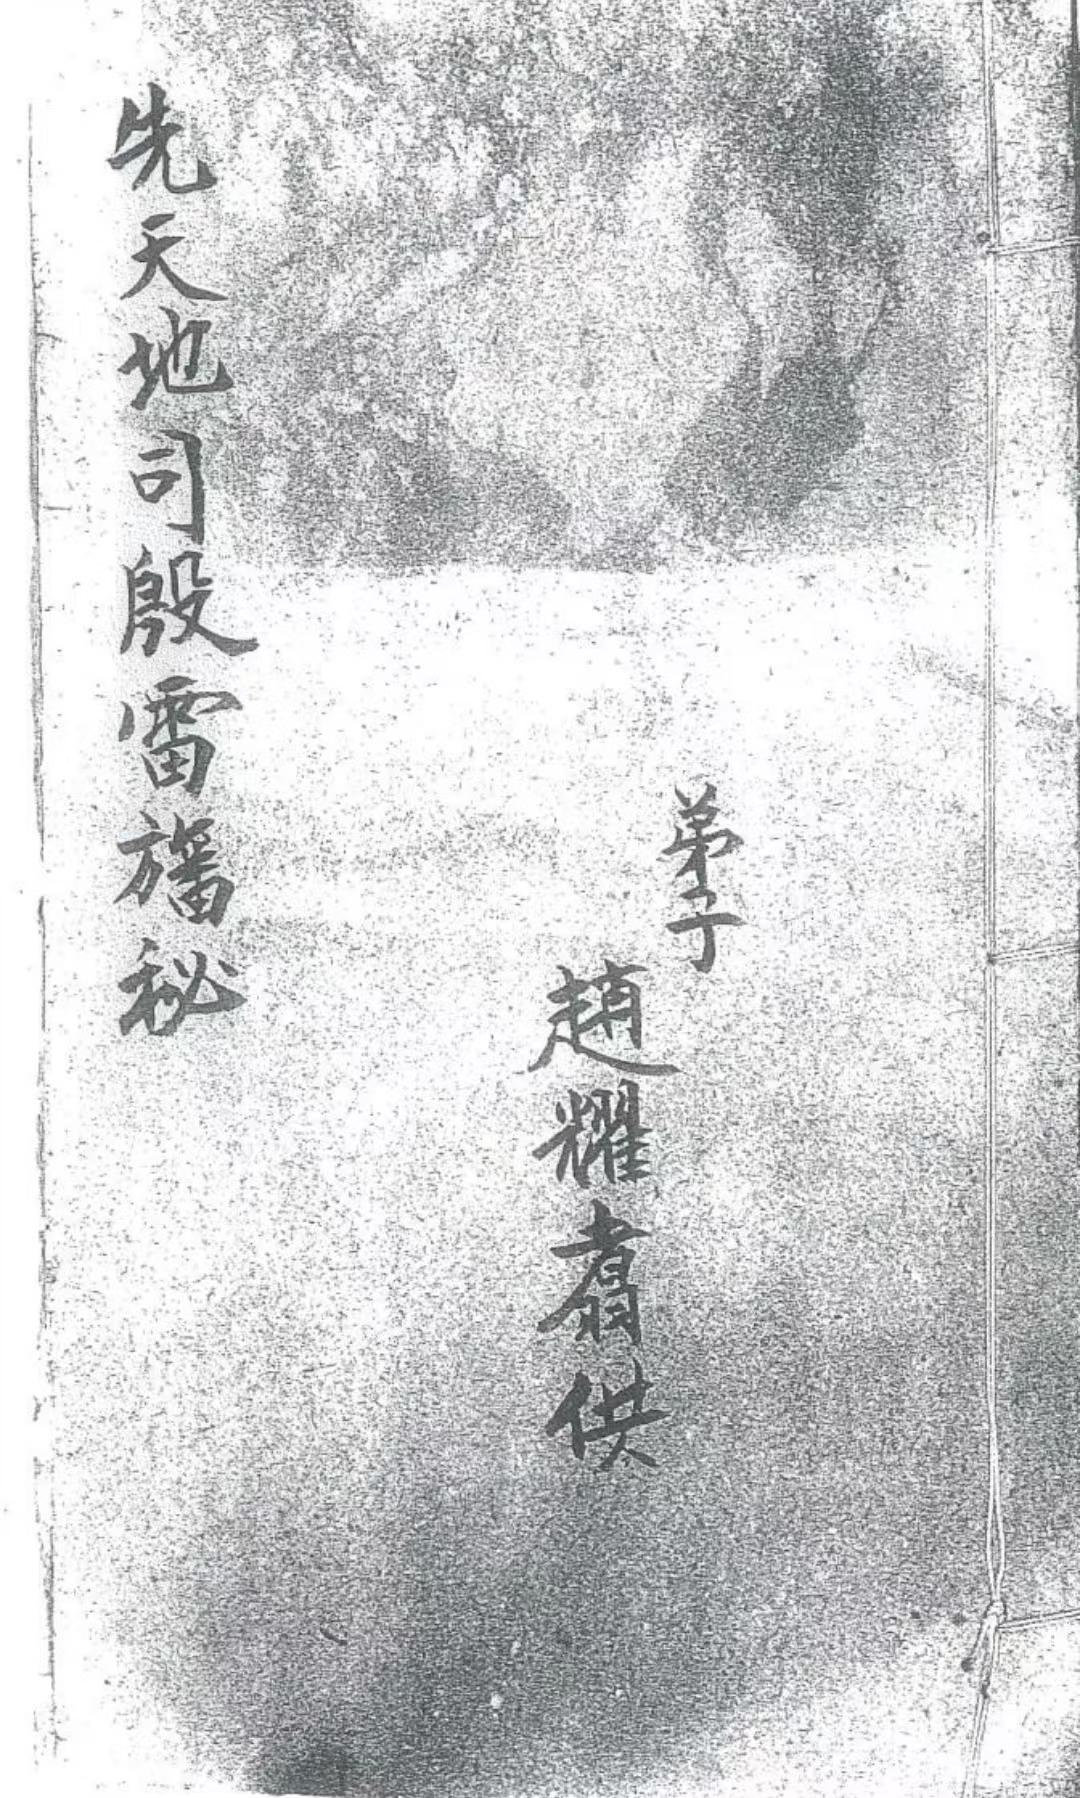 弟子
趙耀翥供
先天地司殷雷旛秘